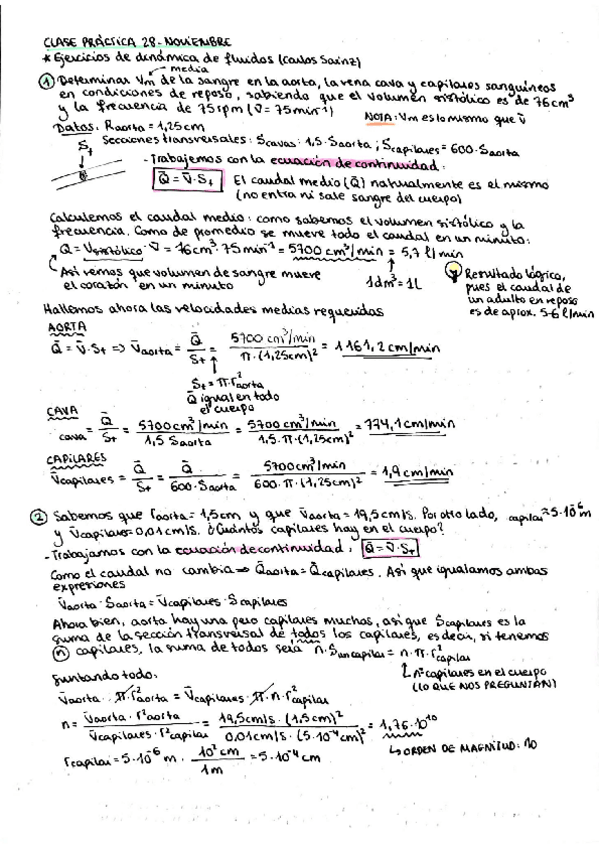 CLASE PRÁCTICA 28-NOVIEMBRE
* Ejercicios de dinámica de fluidos (Carlos Sainz)
① Determinar Vm de la sangre en la aorta, la vena cava y capilares sanguíneos
media
en condiciones de reposo, sabiendo que el volumen sistólico es de 76cm³
y la frecuencia de 75rpm (ν̄ = 75min⁻¹)
NOTA: Vm es lo mismo que v̄
Datos. Raorta = 1,25cm
St Secciones transversales: Scavas: 1,5·Saorta ; Scapilares = 600·Saorta
- Trabajemos con la ecuación de continuidad:
Q̄ = v̄·St El caudal medio (Q̄) naturalmente es el mismo
(no entra ni sale sangre del cuerpo)
Calculemos el caudal medio: como sabemos el volumen sistólico y la
frecuencia. Como de promedio se mueve todo el caudal en un minuto:
Q = Vsistólico·ν̄ = 76cm³·75min⁻¹ = 5700 cm³/min = 5,7 l/min
Así vemos que volumen de sangre mueve
el corazón en un minuto
1dm³ = 1L
Resultado lógico,
pues el caudal de
un adulto en reposo
es de aprox. 5-6 l/min
Hallemos ahora las velocidades medias requeridas
AORTA
Q̄ = v̄·St => v̄aorta = Q̄/St = 5700 cm³/min / π·(1,25cm)² = 1161,2cm/min
St = π·r²aorta
Q̄ igual en todo
el cuerpo
CAVA
cava = Q̄/St = 5700cm³/min / 1,5 Saorta = 5700cm³/min / 1,5·π·(1,25cm)² = 774,1cm/min
CAPILARES
v̄capilares = Q̄/St = Q̄/600·Saorta = 5700cm³/min / 600·π·(1,25cm)² = 1,9cm/min
② Sabemos que raorta = 1,5cm y que v̄aorta = 19,5cm/s. Por otro lado, capilar = 5·10⁻⁶m
y v̄capilares = 0,01cm/s. ¿Cuántos capilares hay en el cuerpo?
- Trabajamos con la ecuación de continuidad. Q̄ = v̄·St
Como el caudal no cambia => Q̄aorta = Q̄capilares. Así que igualamos ambas
expresiones
v̄aorta·Saorta = v̄capilares·Scapilares
Ahora bien, aorta hay una pero capilares muchos, así que Scapilares es la
suma de la sección transversal de todos los capilares, es decir, si tenemos
ⓝ capilares, la suma de todos será n·Sun capilar = n·π·r²capilar
nº capilares en el cuerpo
(LO QUE NOS PREGUNTAN)
Juntando todo.
v̄aorta·π·r²aorta = v̄capilares·π·n·r²capilar
n = v̄aorta·r²aorta / v̄capilares·r²capilar = 19,5cm/s·(1,5cm)² / 0,01cm/s·(5·10⁻⁴cm)² = 1,76·10¹⁰
ORDEN DE MAGNITUD: 10
rcapilar = 5·10⁻⁶ m · 10² cm / 1m = 5·10⁻⁴ cm